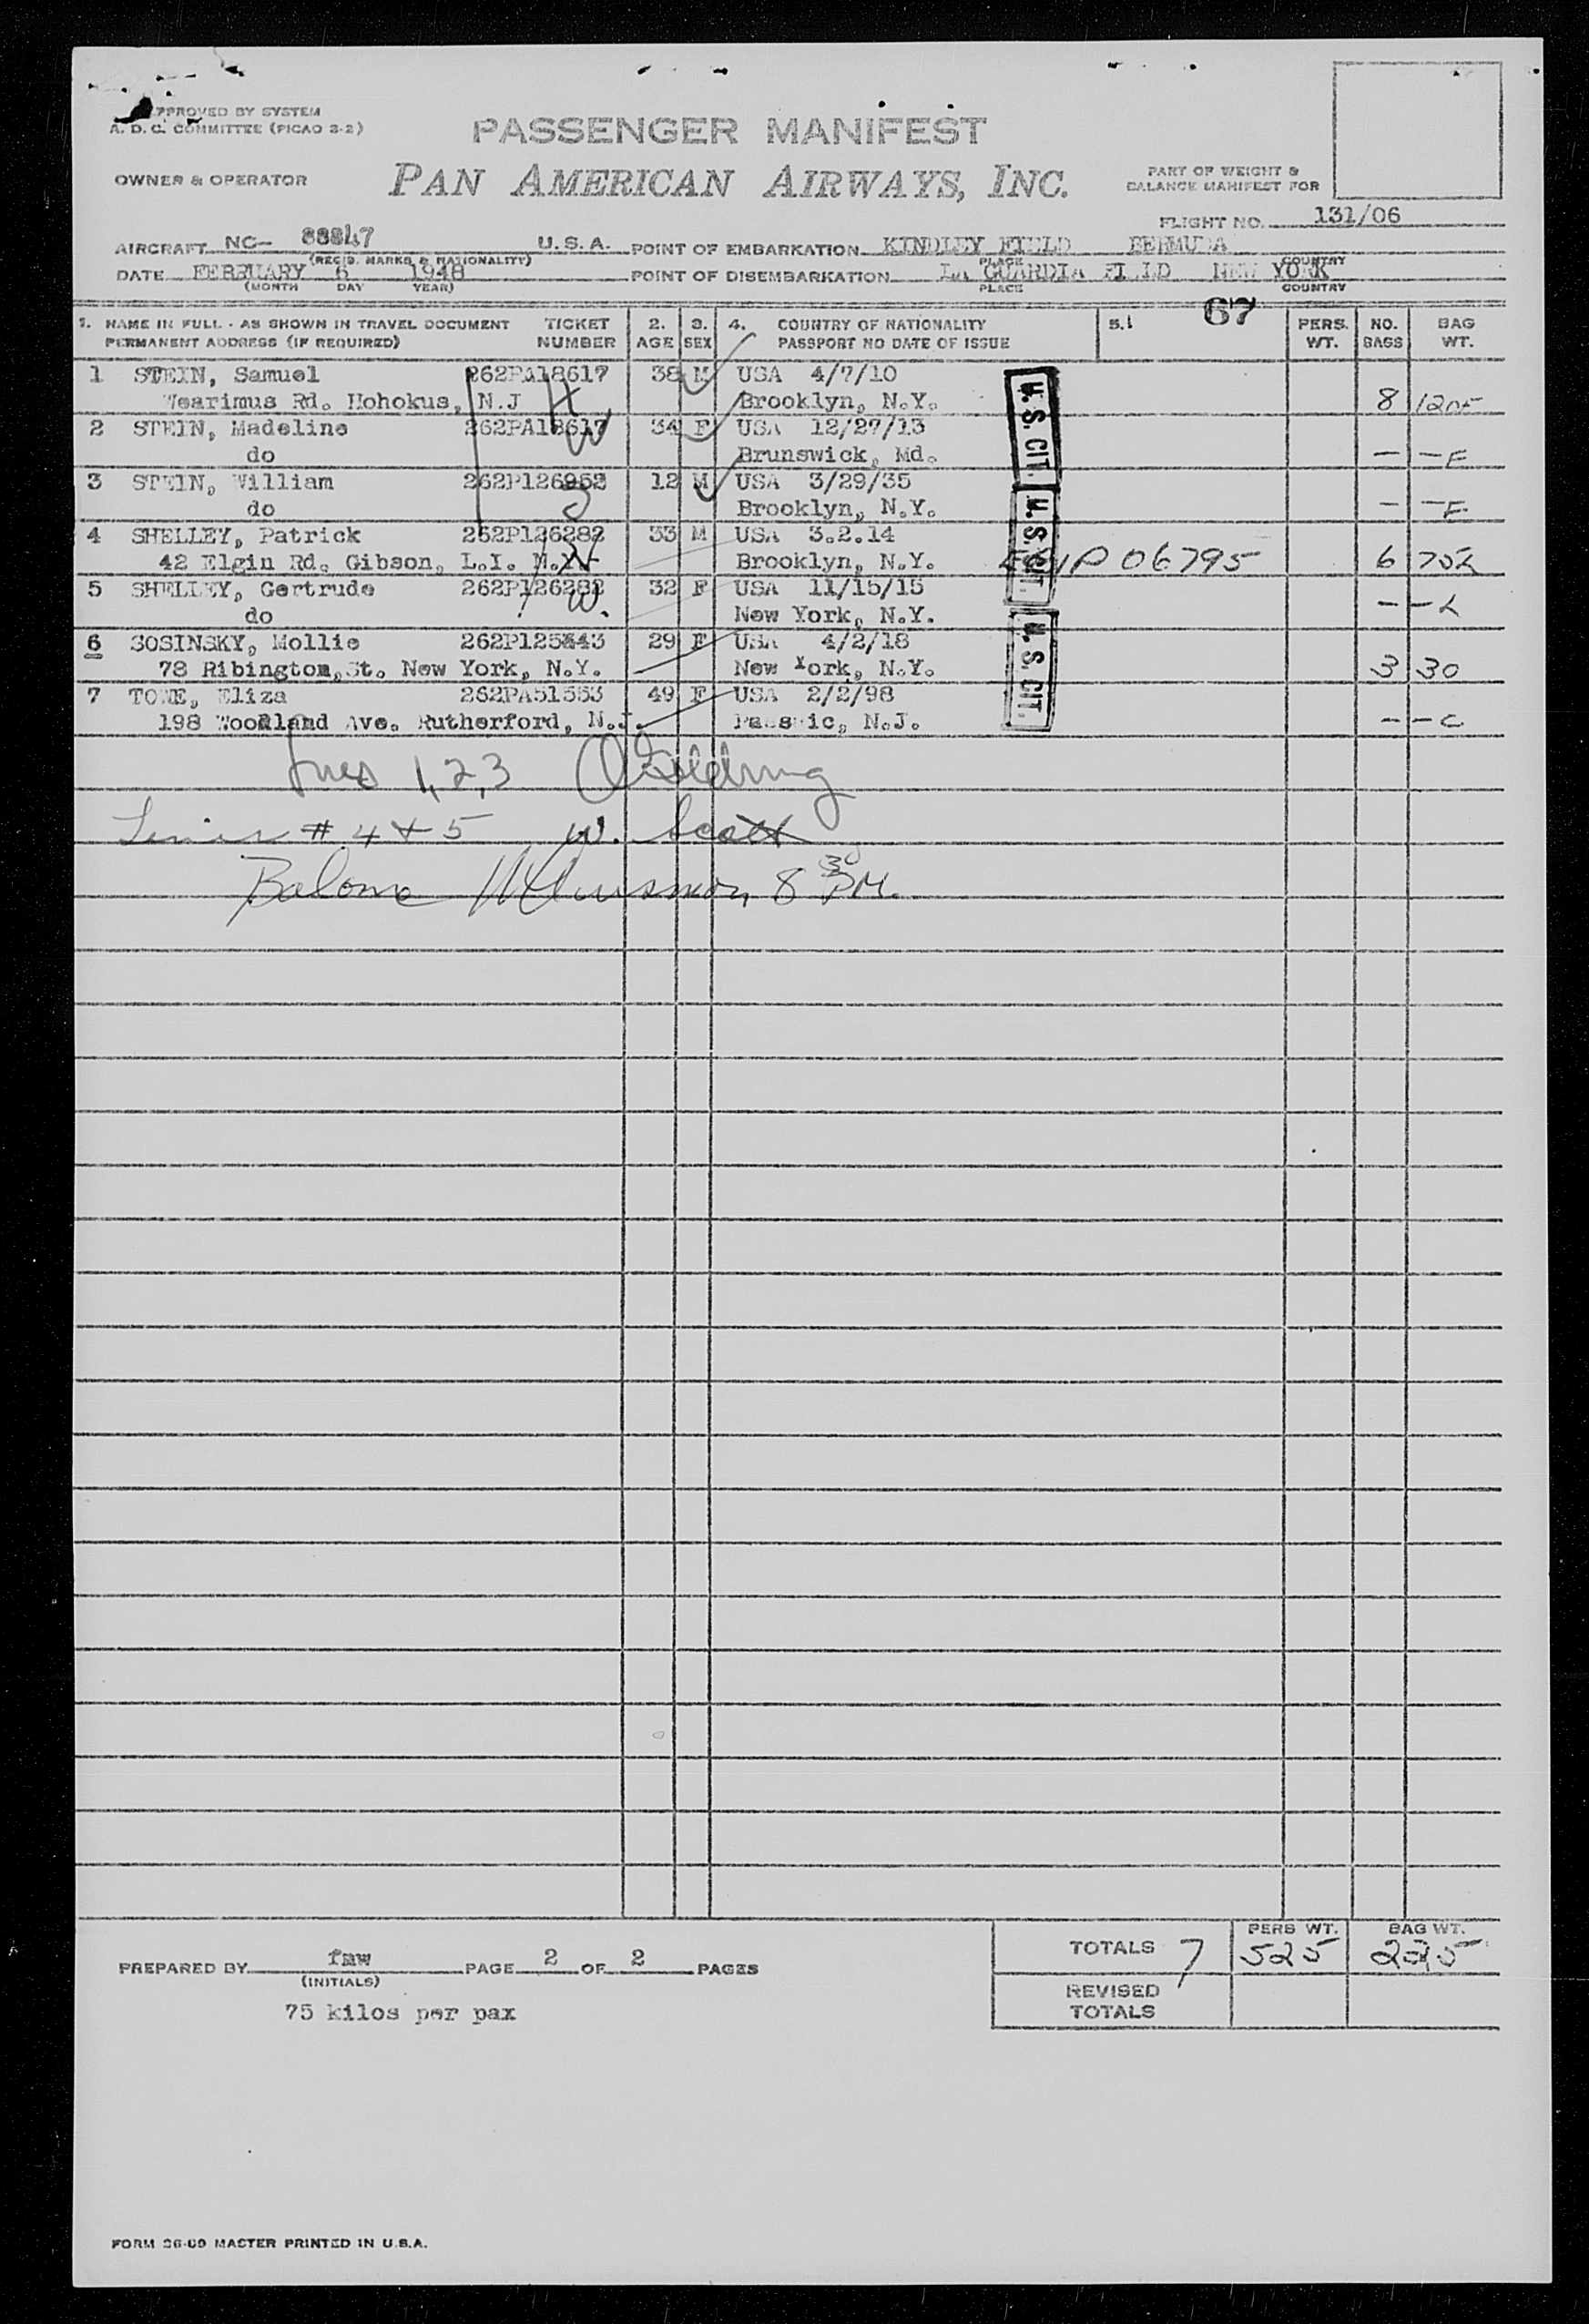 APPROVED BY SYSTEM
A. D. C. COMMITTEE (PICAO 3-2)
PASSENGER MANIFEST
OWNER & OPERATOR
PAN AMERICAN AIRWAYS, INC.
PART OF WEIGHT &
BALANCE MANIFEST FOR
FLIGHT NO. 131/06
AIRCRAFT NC- 88847 U.S.A. POINT OF EMBARKATION KINDLEY FIELD BERMUDA
(REGIS. MARKS & NATIONALITY) PLACE COUNTRY
DATE FEBRUARY 6 1948 POINT OF DISEMBARKATION LA GUARDIA FIELD NEW YORK
(MONTH DAY YEAR) PLACE COUNTRY
67
1. NAME IN FULL - AS SHOWN IN TRAVEL DOCUMENT TICKET 2. 3. 4. COUNTRY OF NATIONALITY 5. PERS. NO. BAG
PERMANENT ADDRESS (IF REQUIRED) NUMBER AGE SEX PASSPORT NO DATE OF ISSUE WT. BAGS WT.
1 STEIN, Samuel 262PA18617 38 M USA 4/7/10
Wearimus Rd. Hohokus, N.J Brooklyn, N.Y. 8
2 STEIN, Madeline 262PA18617 34 F USA 12/27/13
do Brunswick, Md. — — F
3 STEIN, William 262P126952 12 M USA 3/29/35
do Brooklyn, N.Y. — — F
4 SHELLEY, Patrick 262P126282 33 M USA 3.2.14
42 Elgin Rd. Gibson, L.I. N.Y. Brooklyn, N.Y. 06795 6
5 SHELLEY, Gertrude 262P126282 32 F USA 11/15/15
do New York, N.Y. — —
6 SOSINSKY, Mollie 262P125843 29 F USA 4/2/18
78 Ribington, St. New York, N.Y. New York, N.Y. 3 30
7 TOWE, Eliza 262PA51553 49 F USA 2/2/98
198 Woodland Ave. Rutherford, N.J. Passaic, N.J. — — C
U.S. CIT.
U.S. CIT.
U.S. CIT.
Lines 1,2,3 Goldring
Lines # 4 & 5 W. Scott
8 30 PM.
PREPARED BY faw PAGE 2 OF 2 PAGES
(INITIALS)
75 kilos per pax
PERS WT. BAG WT.
TOTALS 7 525 225
REVISED
TOTALS
FORM 36-09 MASTER PRINTED IN U.S.A.